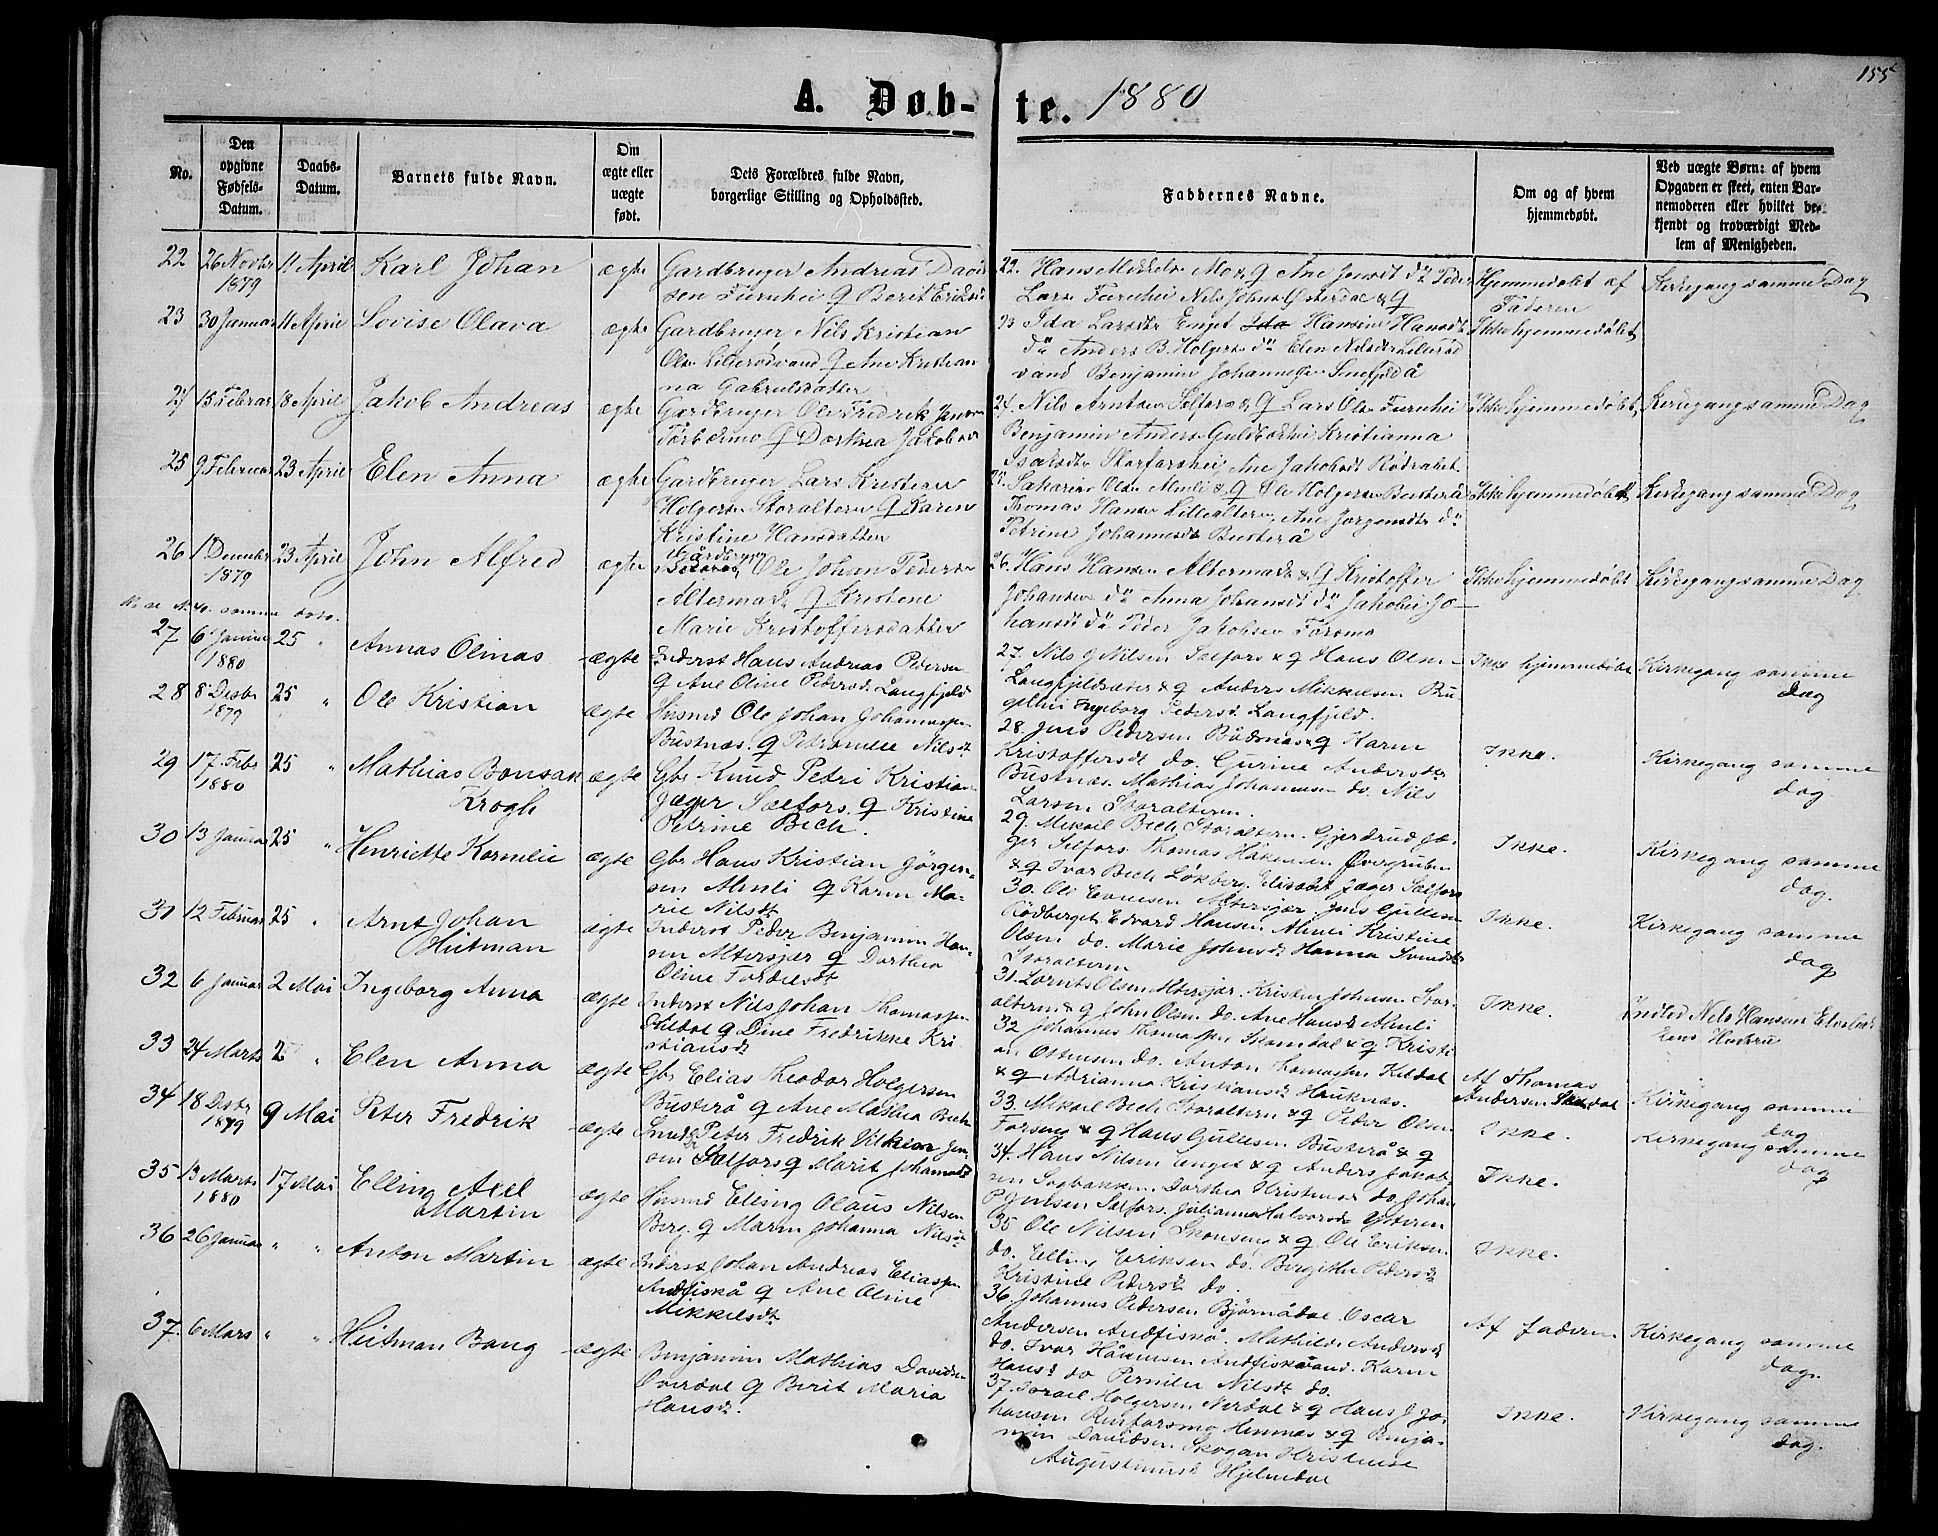 155
A. Døb-te. 1880
No.
Den opgivne Fødsels-Datum.
Daabs-Datum.
Barnets fulde Navn.
Om ægte eller uægte født.
Dets Forældres fulde Navn, borgerlige Stilling og Opholdssted.
Faddernes Navne.
Om og af hvem hjemmedøbt.
Ved uægte Børn: af hvem Opgaven er skeet, enten Barnemoderen eller hvilket bekjendt og troværdigt Medlem af Menigheden.
22 26 Novbr 1879 11 April Karl Johan ægte Gardbruger Andreas David
sen Furuhei & Berit Eriksd
22. Hans Mikkels Mo & Q Ane Jensdt do Peder
Lars Furuhei Nils Johns Østerdal & Q
Hjemmedøbt af Faderen
Kirkegang samme Dag
23 30 Januar 11 April Lovise Olava ægte Gardbruger Nils Kristian
Olsn Lillerødvand Q Ane Kristian
na Gabrielsdatter
23 Ida Larsdtr Enget Hansine Hansdt
do Anders B. Holgers do Elen Nilsdtr Lillerød
vand Benjamin Johannesen
Ikke hjemmedøbt
24 15 Februar 18 April Jakob Andreas ægte Gardbruger Ole Fredrik Jens
Q Dorthea Jakobs
24. Nils Arntsen Selfors & Q Lars Ols Furuhei
Benjamin Anders Kristianna
Isaksdtr Storforshei, Ane Jakobsdt
Ikke hjemmedøbt, Kirkegang samme Dag
25 9 Februar 23 April Elen Anna ægte Gardbruger Lars Kristian
Holgers Storalteren Q Karen
Kristine Hansdatter
Olsn Almli & Q Ole Holgers Busterå
Thomas Hansen Lillealteren, Ane Jørgensdtr do
Petrine Johannesdt Busterå
Ikke hjemmedøbt Kirkegang samme Dag
26 1 December 1879 23 April John Alfred ægte Gårdbr Ole Johan Peders
Altermark Q Kristene
Marie Kristoffersdatter
26. Hans Hansen Altermark & Q Kristoffer
Johansen do Anna Johansdt do Jakobei Jo-
hansdt do Peder Jakobsen Forsmo
Ikke hjemmedøbt Kirkegang samme Dag
27 6 Januar 1880 25 " Annas Olinas ægte Inderst Hans Andreas Pedersen
Q Ane Oline Pedersdt Langfjeld
27. Nils J Nilsen Selfors & Q Hans Olsn
Langfjeldsæter & Q Anders Mikkelsen
Ingeborg Pedersd. Langfjeld.
Ikke hjemmedøbt Kirkegang samme dag
28 8 Desbr 1879 25 " Ole Kristian ægte Husmd Ole Johan Johannesen
Bustnes. Q Petronelle Nilsdt
28. Jens Pedersen Q Karen
Kristoffersdt do. Gurine Andersdtr
Bustnes. Mathias Johannesen do. Nils
Larsen Storalteren.
Ikke. Kirkegang samme dag.
29 17 Febr 1880 25 " Mathias Bonsak Krogh ægte Gbr Knud Petri Kristian
Jæger Selfors. Q Kristine
Petrine Bech.
29. Mikail Bech Storalteren. Gjerdrud Jæ-
ger Selfors. Thomas Håkensen Øvergruben
& Q Ivar Bech Løkberg. Elisabet Jæger Selfors
Ikke. Kirkegang samme dag.
30 13 Januar 25 " Henriette Kornelie ægte Gbr Hans Kristian Jørgen-
sen Almli Q Karen Ma-
rie Nilsdt
30. Ole Altersjær. Jens Gullesen
Rødberget. Edvard Hansen Almli Kristine
Olsen do. Marie Johnsdt Hanna Svendsdt
Storalteren
Ikke. Kirkegang samme dag
31 12 Februar 25 " Arnt Johan Hutman ægte Inderst Peder Benjamin Han-
sen Altersjær Q Dorthea
Oline Tordelsdt
31. Lornts Olsen Altersjær. Kristen Johnsen Stor-
alteren & Q John Olsen do. Ane Hansdt Almli
Ikke.
32 6 Januar 2 Mai Ingeborg Anna ægte Inderst Nils Johan Thomassen
Kildal Q Dine Fredrikke Kri
stiansdt
32 Johannes Thomassen Skamdal & Q Kristi
an Ottensen do. Anton Thomassen Kildal
& Q Adrianna Kristiansdt Hauknes.
Af Thomas Andersen
Nils Hansen
33 24 Marts 2 " Elen Anna ægte Gbr Elias Theodor Holgersen
Busterå Q Ane Mathea Bech
33. Mikael Bech Storalteren & Q Peder Olsen
Forseng & Q Hans Gullesen Busterå & Q
Ikke. Kirkegang samme dag
34 18 Desbr 1879 9 Mai Peter Fredrik ægte Peter Fredrik Jen
sen Selfors Q Marit Johansdt
34. Hans Nilsen Enget & Q Anders Jakob
sen Sagbakken. Dorthea Kristensd do. Johan
P. Jensen Selfors. Julianna Halvorsdt Ytteren
Ikke. Kirkegang samme dag
35 13 Marts 1880 17 Mai Elling Axel Martin ægte Husmd Elling Olaus Nilsen
Berg. Q Maren Johanna Nilsdt
35 Ole Nilsen Skonseng & Q Ole Eriksen
do. Elling Eriksen do. Birgitte Pedersdt
Kristine Pedersdt do.
Ikke.
36 26 Januar " " Anton Martin ægte Inderst Johan Andreas Eliassen
Andfiskå Q Ane Oline
Mikkelsdt
36. Johannes Pedersen Bjørnådal. Oscar
Andersen Andfiskå. Mathilde Andersdt
do. Ivar Håkensen Andfiskåvand. Karen
Hansdt do Pernille Nilsdt do.
Af faderen Kirkegang samme dag.
37. 6 Mars " " Hutman Bang ægte Benjamin Mathias Davidsen
Overdal Q Berit Maria
Hansdt.
37. Israel Holgersen Nerdal & Q Hans J Jo-
hansen Reinforsmo Hemnes & Q Benja-
min Davidsen Skogan Kristense
Augustinusd Hjelmedal
Ikke. Kirkegang samme dag.